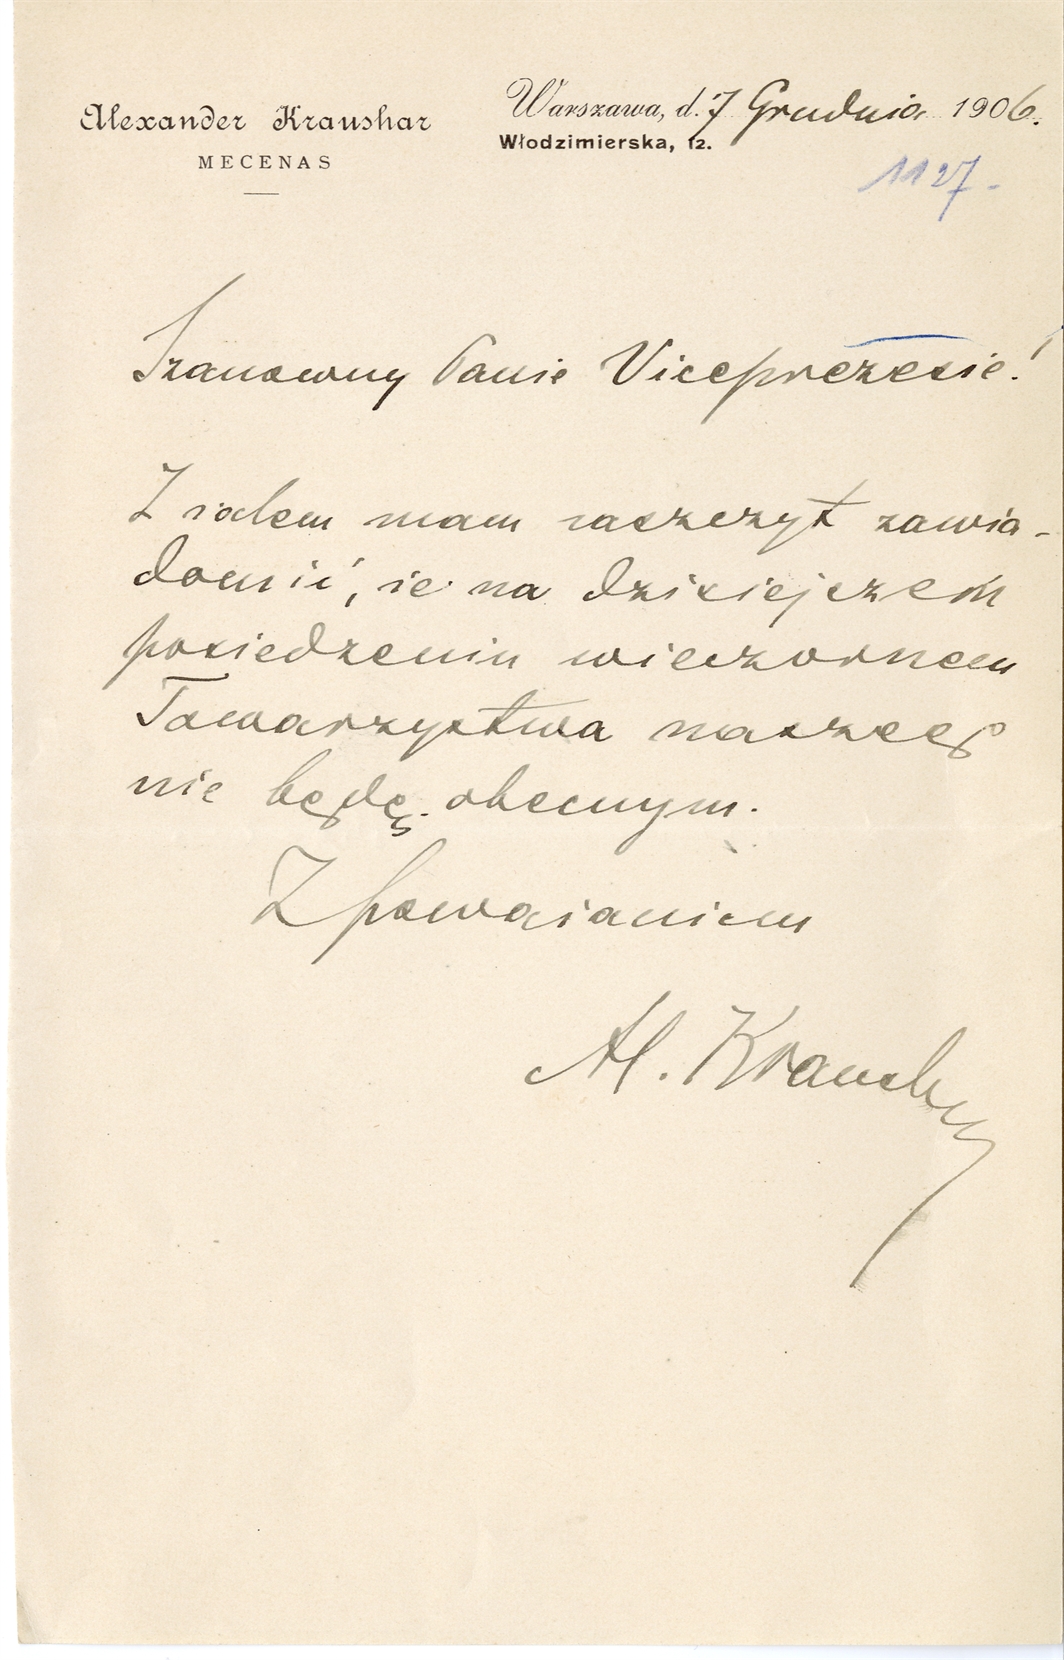 Alexander Kraushar
MECENAS
Warszawa, d. 7 Grudnia 1906.
Włodzimierska, 12.
1127-
Szanowny Panie Viceprezesie!
Z żalem mam zaszczyt zawia-
domić, że na dzisiejszem
posiedzeniu wieczornem
Towarzystwa naszego
nie będę obecnym.
Z poważaniem
Al. Kraushar